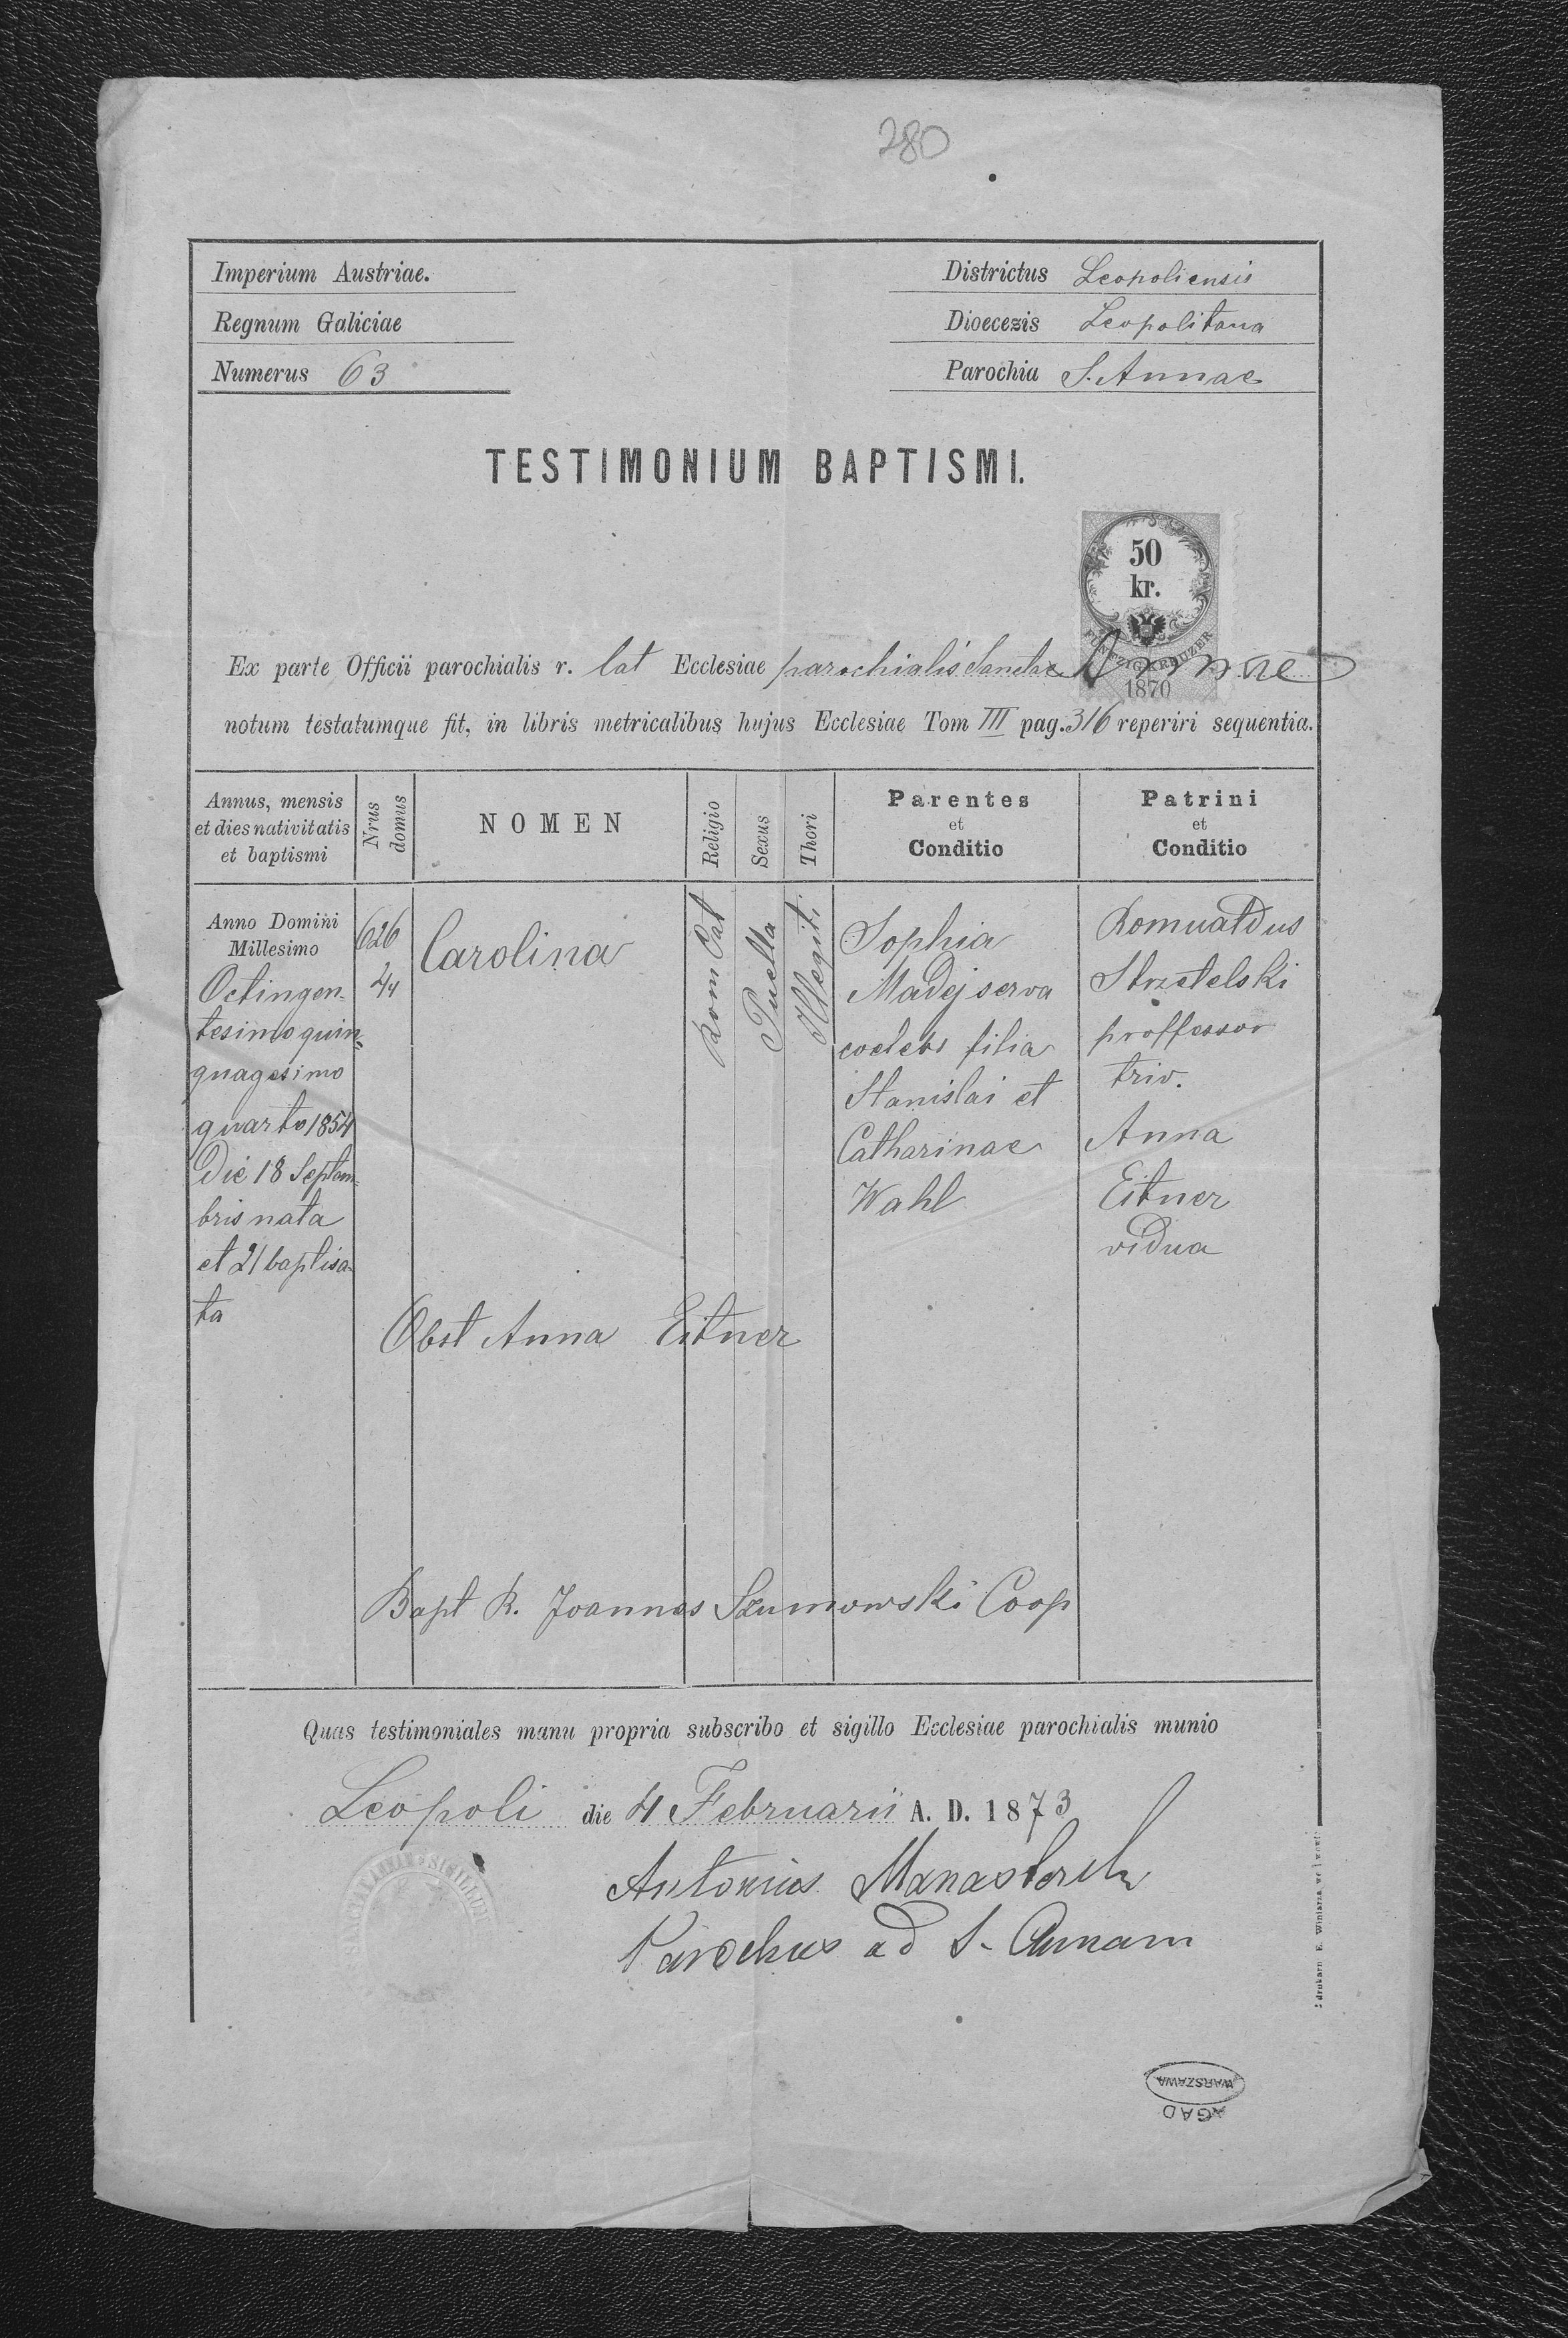 280
Imperium Austriae.
Regnum Galiciae
Numerus 63
Districtus Leopoliensis
Dioecezis Leopolitana
Parochia S. Annae
TESTIMONIUM BAPTISMI.
50
kr.
FÜNFZIG KREUZER
1870
Ex parte Officii parochialis r. lat Ecclesiae parochialis Sanctae Annae
notum testatumque fit, in libris metricalibus hujus Ecclesiae Tom III pag. 316 reperiri sequentia.
Annus, mensis
et dies nativitatis
et baptismi
Nrus
domus
NOMEN
Religio
Sexus
Thori
Parentes
et
Conditio
Patrini
et
Conditio
Anno Domini
Millesimo
Octingen-
tesimo quin-
quagesimo
quarto 1854
Die 18 Septem-
bris nata
et 21 baptisa-
ta
626
4/4
Carolina
Rom Cat
Puella
Illegiti
Sophia
Madej serva
coelebs filia
Stanislai et
Catharinae
Wahl
Romualdus
Strzetelski
proffessor
triv.
Anna
Eitner
vidua
Obst Anna Eitner
Bapt R. Joannes Szumowski Coop
Quas testimoniales manu propria subscribo et sigillo Ecclesiae parochialis munio
Leopoli die 4 Februarii A. D. 1873
Antonius
Parochus ad S. Annam
SIGILLUM
Z drukarn E. Winiarza we Lwowi
WARSZAWA
AGAD